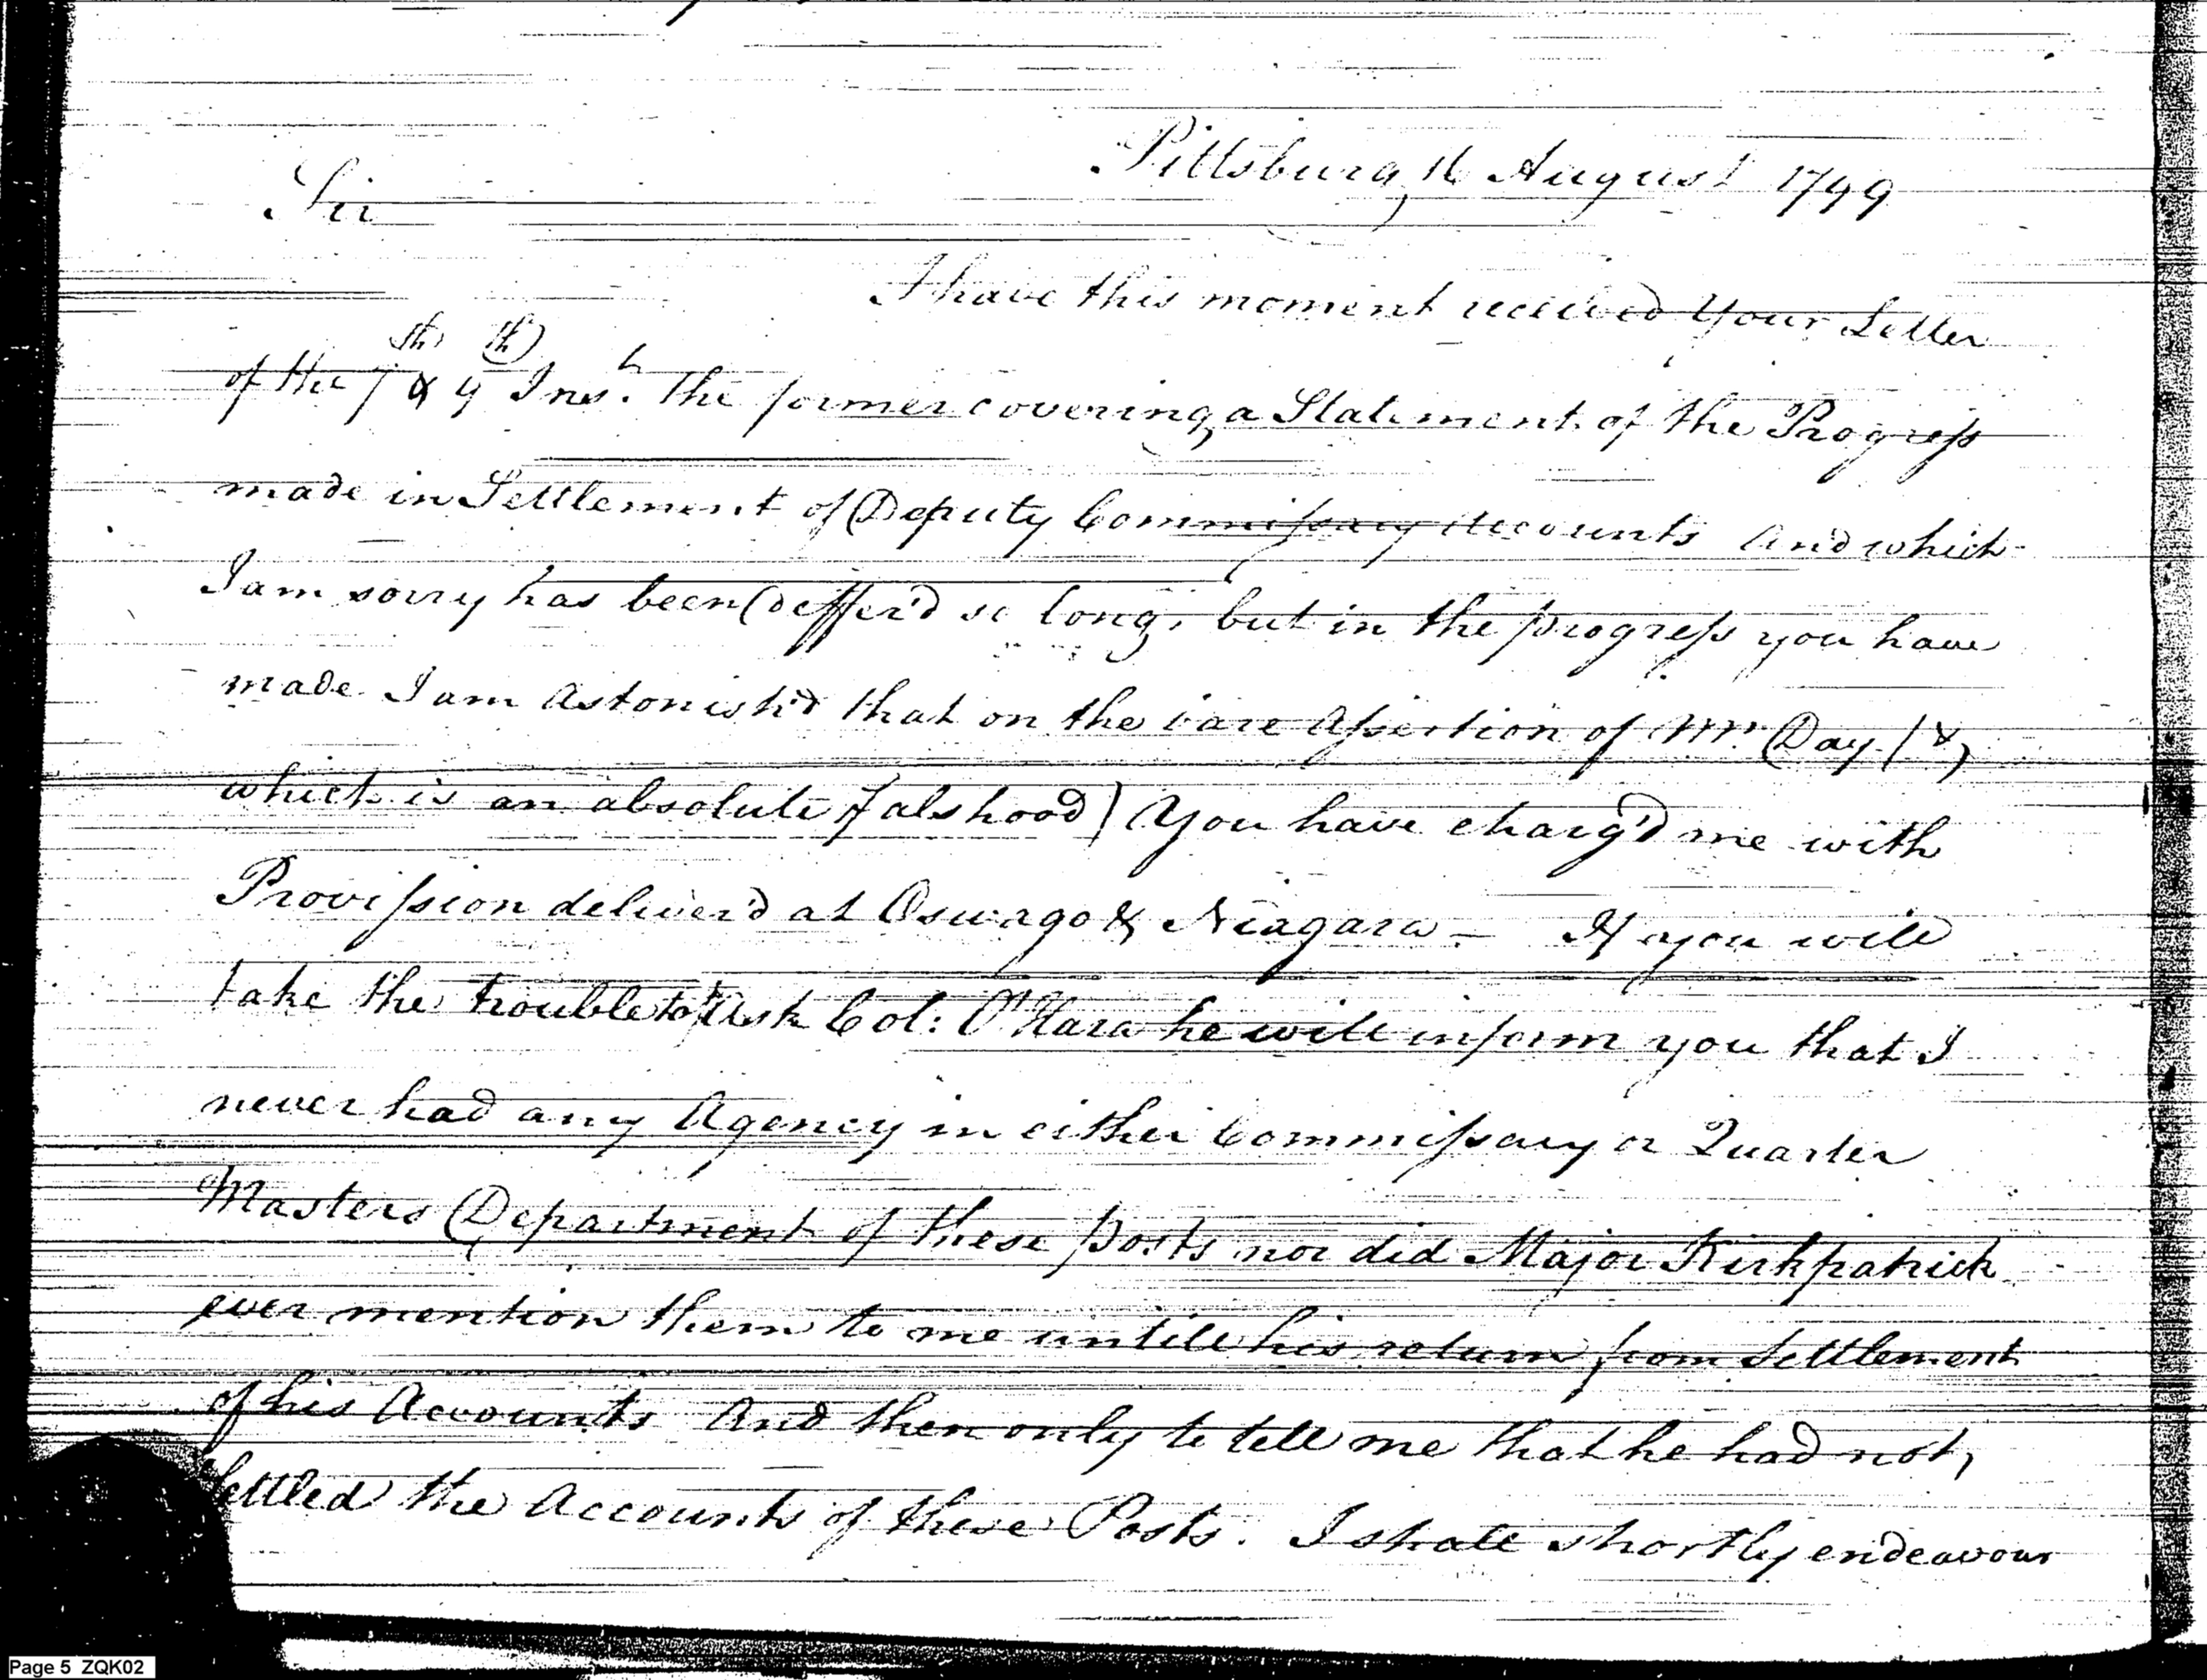 Pittsburg, 16 August 1799
Sir
I have this moment received Your Letter
of the 7th & 9th Inst. The former covering a Statement of the Progress
made in Settlement of Deputy Commissary Accounts And which
I am sorry has been deffer'd so long, but in the progress you have
made I am Astonish'd that on the bare Assertion of Mr. Day (&
which is an absolute falshood) You have charg'd me with
Provission deliver'd at Oswago & Niagara — If you will
take the trouble to Ask Col: O'Hara he will inform you that I
never had any Agency in either Commissary or Quarter
Masters Department of these Posts nor did Major Kirkpatrick
ever mention them to me untill his return from Settlement
of his Accounts And then only to tell me that he had not,
Settled the Accounts of these Posts. I shall shortly endeavour
Page 5 ZQK02